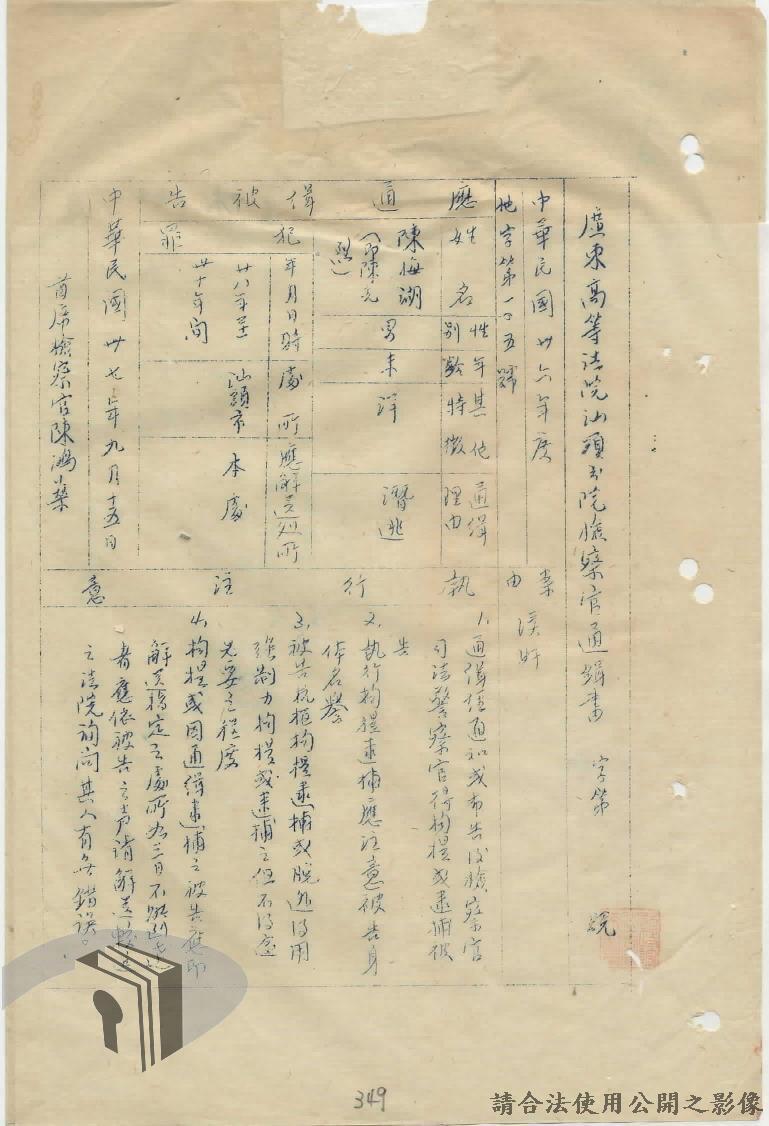 廣東高等法院汕頭分院檢察官通緝書 字第 號
中華民國卅六年度
他字第一〇五號
案由
漢奸
應通緝被告
姓名
性別
年齡
其他特徵
通緝理由
陳海湖
男
未詳
潛逃
犯罪
年月日時
處所
應解送處所
廿八年至
卅十年間
汕頭市
本處
執行注意
1、通緝經通知或布告後檢察官
司法警察官得拘提或逮捕被
告
2、執行拘提逮捕應注意被告身
体名譽
3、被告抗拒拘提逮捕或脫逃得用
強制力拘提或逮捕之但不得逾
必要之程度
4、拘提或因通緝逮捕之被告應即
解送指定之處所如三日不能到達
者應依被告之声請解送較近
之法院詢問其人有無錯誤。
中華民國卅七年九月十五日
首席檢察官陳鴻
349
請合法使用公開之影像